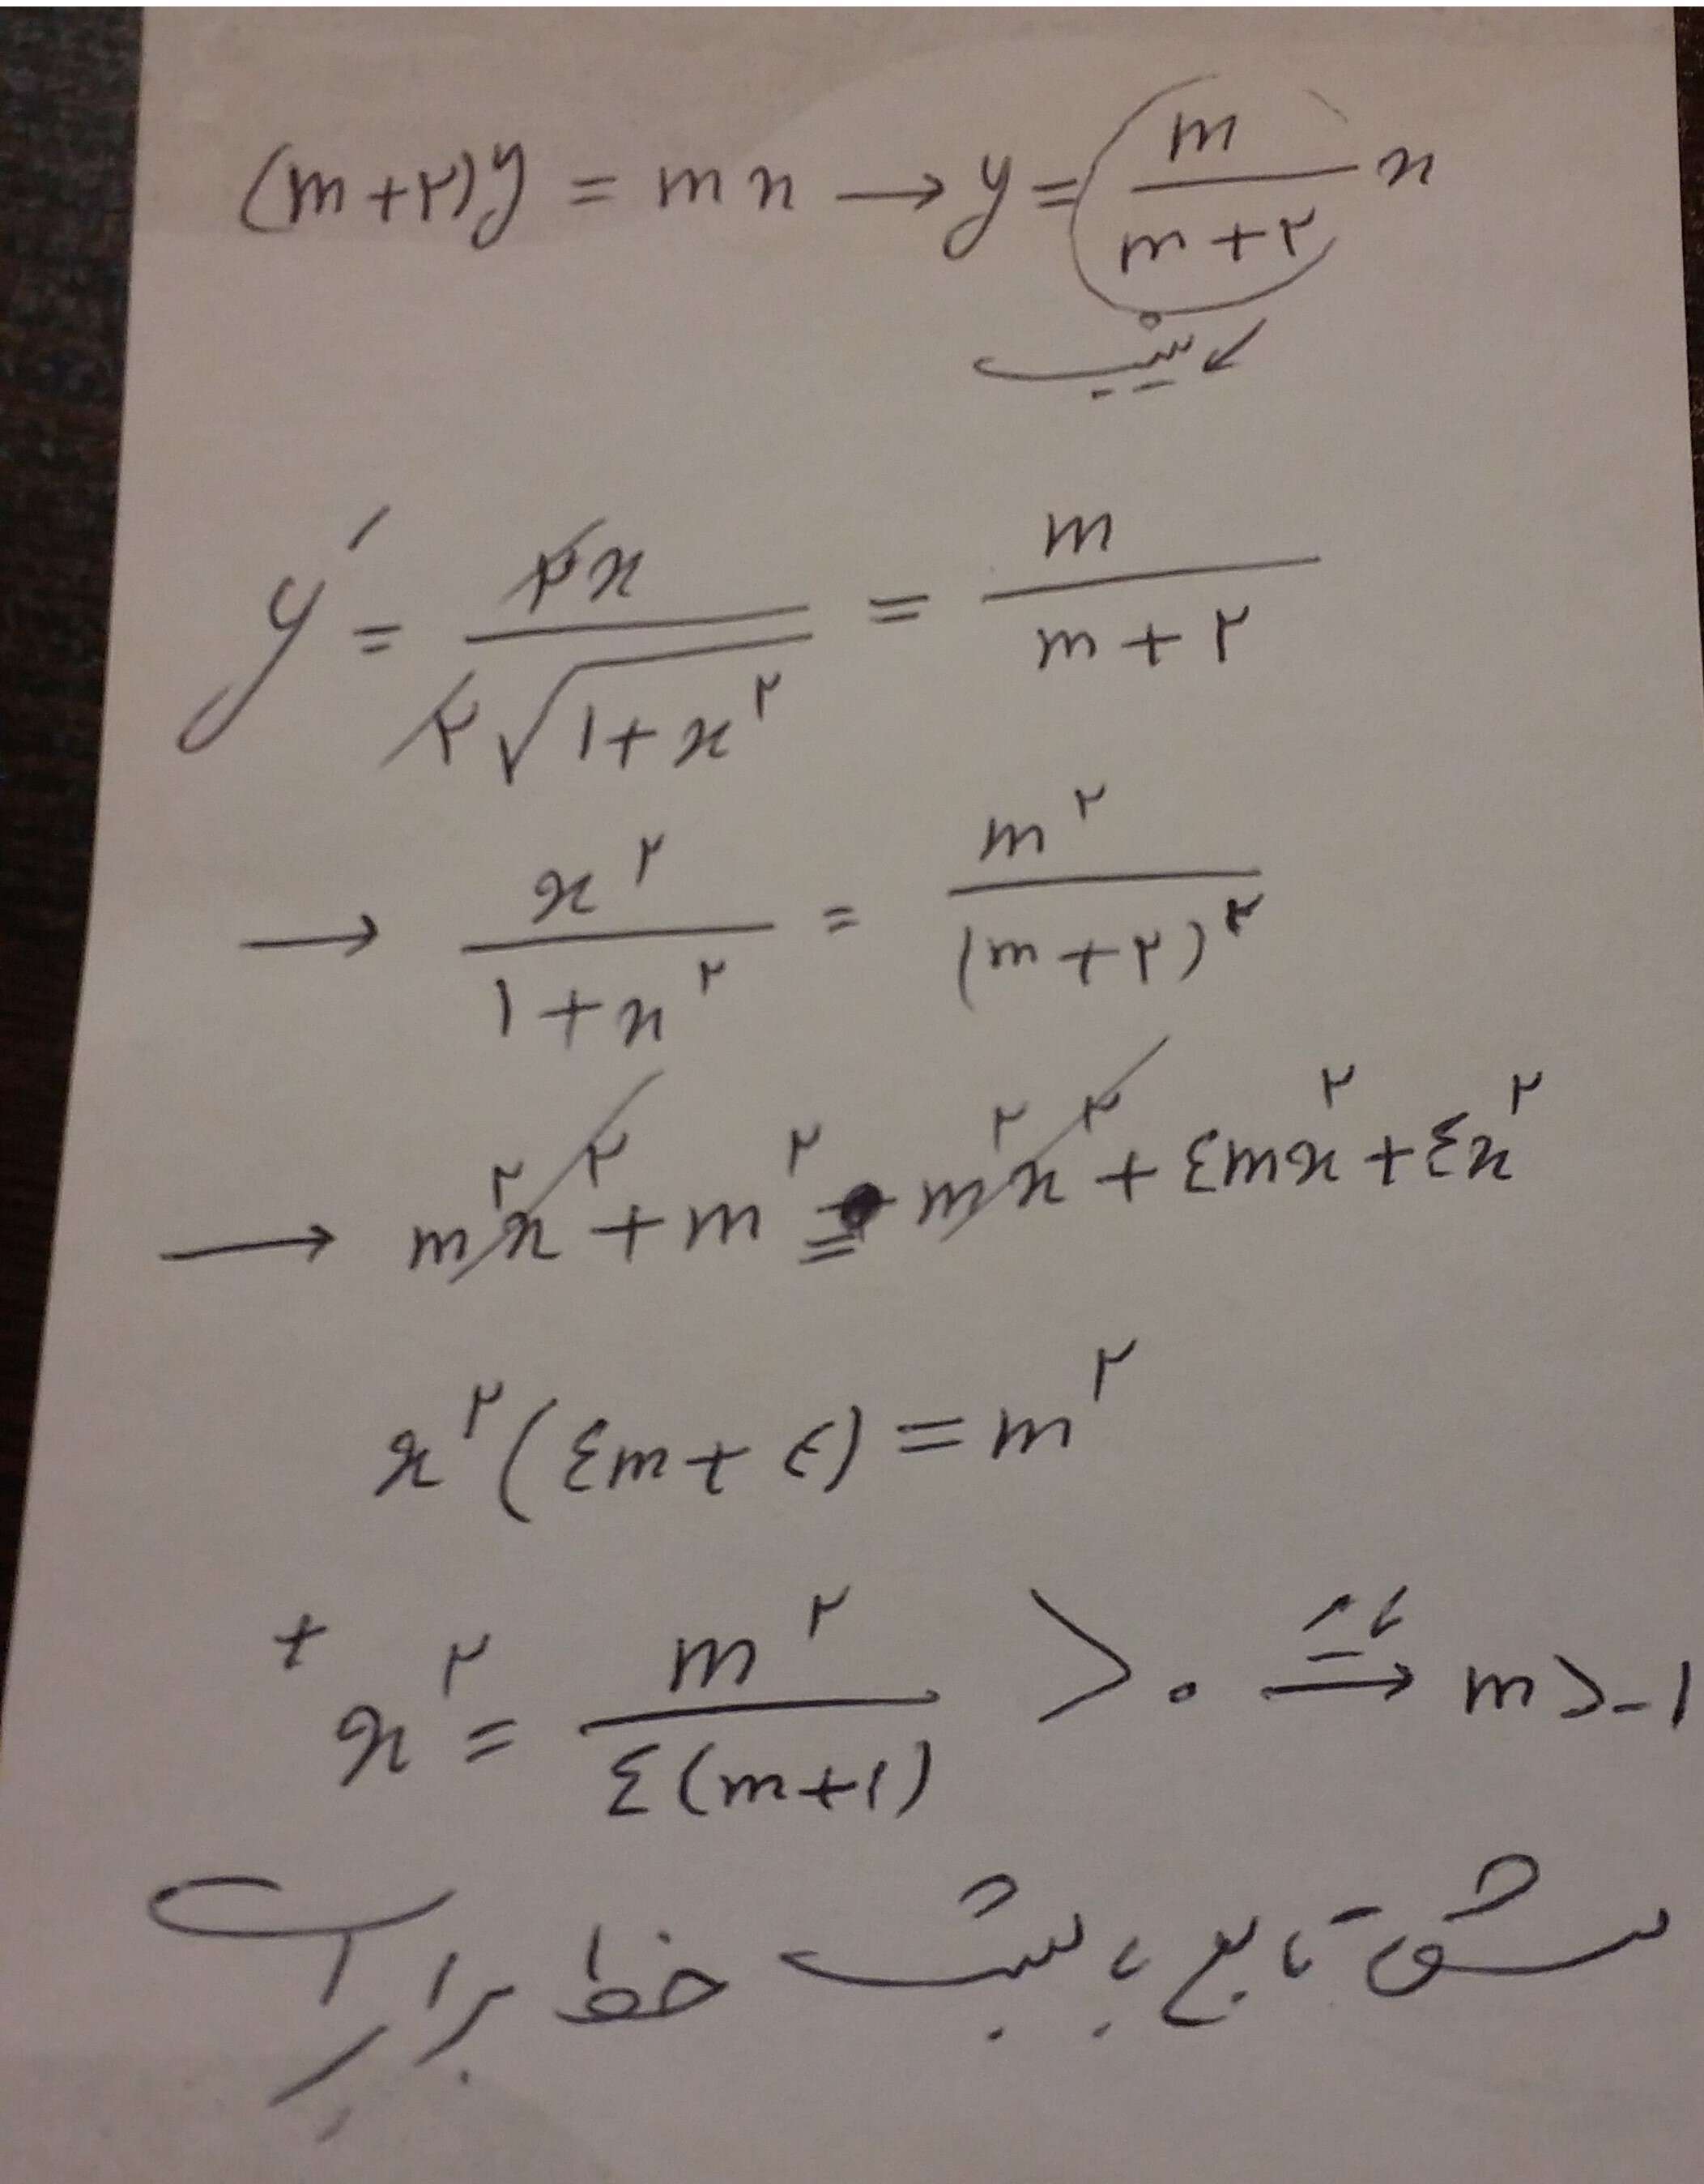 (m+۲)y = mx → y = m/(m+۲) x
شیب
y′ = ۲x/(۲√(۱+x^۲)) = m/(m+۲)
→ x^۲/(۱+x^۲) = m^۲/(m+۲)^۲
→ m^۲x^۲ + m^۲ = m^۲x^۲ + ٤mx^۲ + ٤x^۲
x^۲(٤m+٤) = m^۲
x^۲ = m^۲/(٤(m+۱)) > ۰ → m > -۱
مشتق تابع با شیب خط برابر است